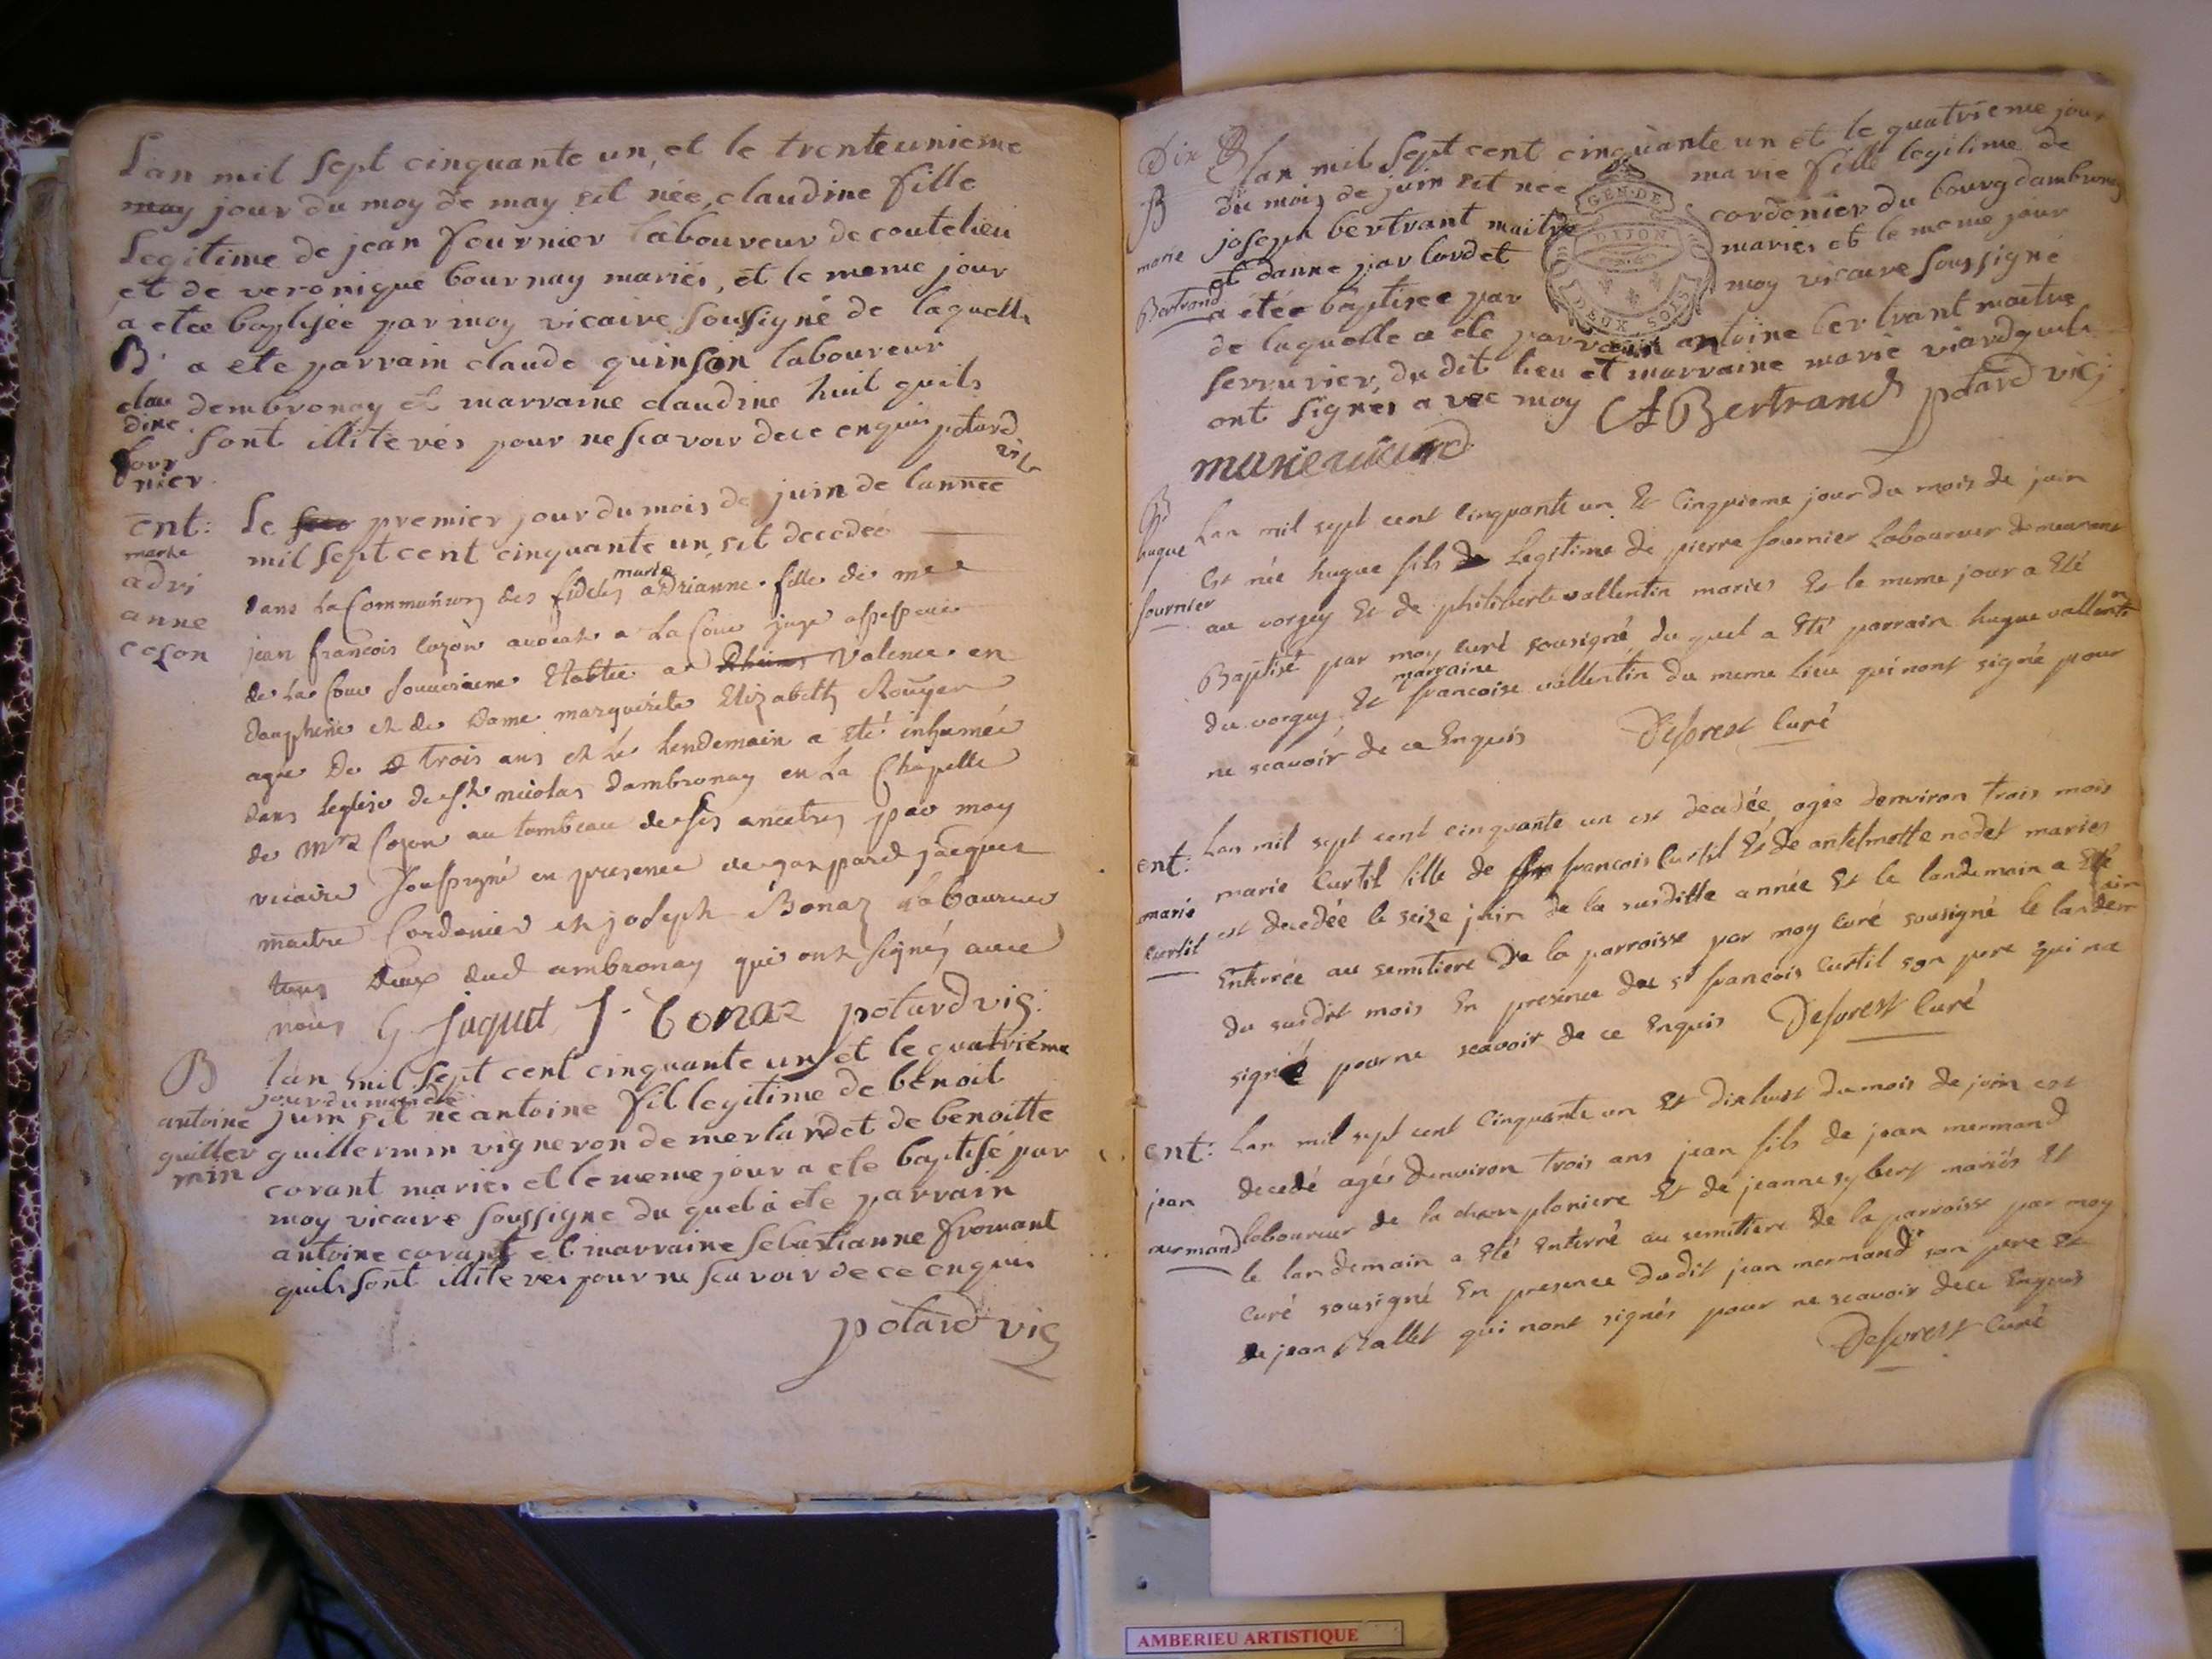 Lan mil sept cinquante un, et le trenteunieme
may jour du moy de may est née, claudine fille
Legitime de jean fournier laboureur de coutelieu
et de veronique bournay mariés, et le meme jour
a etee baptisée par moy vicaire soussigné de laquelle
B. a ete parrain claude quinson laboureur
clau dembronay et marraine claudine huit quils
dine sont illiterés pour ne scavoir de ce enquis potard
four vic
nier.
ent: Le premier jour du mois de juin de lannee
marie mil sept cent cinquante un, est decedée
adri dans La Communion des fideles marie adrianne fille de me
anne jean francois cozon avocat a La Cour juge assesseur
cozon de La Cour souveraine Etablie a Rheims Valence en
dauphiné et de Dame marguerite Elizabeth Rouyer
agée De trois ans et Le Lendemain a été inhumée
dans Leglise de st nicolas dambronay en La Chapelle
de Mrs Cozon au tombeau de ses ancetres par moy
vicaire soussigné en presence de gaspard jacquet
maitre Cordonier et joseph Bonaz Laboureur
tous deux dud ambronay qui ont signés avec
nous G. Jaquet J. bonaz potard vic.
B lan mil sept cent cinquante un et le quatriéme
jour du mois de
antoine juin est né antoine fil legitime de benoit
guiller guillermin vigneron de merland et de benoitte
min corant mariés et le meme jour a ete baptisé par
moy vicaire soussigne du quel a ete parrain
antoine corant et marraine sebastianne fromant
quils sont illiterés pour ne scavoir de ce enquis
potard vic
Dix Lan mil sept cent cinquante un et le quatrieme jour
B du mois de juin est née marie fille legitime de
joseph bertrant maitre cordonier du bourg dambronay
marie et danne par lordet mariés et le meme jour
Bertrand a étée baptisée par moy vicaire soussigné
GEN. DE DIJON
DEUX SOLS
de laquelle a ete parrain antoine bertrant maitre
serrurier, du dit lieu et marraine marie viard quils
ont signés avec moy A Bertrand potard vic
marie viard
B. Lan mil sept cent cinquante un Et Cinquieme jour du mois de juin
hugue Est née hugue fils Legitime de pierre fournier Laboureur demeurant
fournier au vorgey Et de philiberte vallentin mariés Et le meme jour a Eté
Baptisé par moy curé sousigné du quel a Eté parrain hugue vallentin
du vorgey Et marraine francoise vallentin du meme lieu qui nont signé pour
ne scavoir de ce Enquis Deforest Curé
ent: Lan mil sept cent cinquante un est decedée agée denviron trois mois
marie marie Curtil fille de francois Curtil Et de antelmette nodet mariés
curtil est decedée le seize juin de la susditte année Et le landemain a Eté
Enterrée au semitiere De la parroisse par moy curé sousigné le landemain
du susdit mois En presence du st francois Curtil son pere qui na
signé pour ne scavoir de ce Enquis Deforest Curé
ent: Lan mil sept cent Cinquante un Et dixhuit du mois de juin est
jean decedé agés denviron trois ans jean fils de jean mermand
mermand laboureur de la champloniere Et de jeanne sybert mariés Et
le landemain a Eté Enterré au semitiere De la parroisse par moy
Curé sousigné En presence dudit jean mermand son pere Et
de jean Rallet qui nont signés pour ne scavoir de ce Enquis
Deforest Curé
AMBERIEU ARTISTIQUE